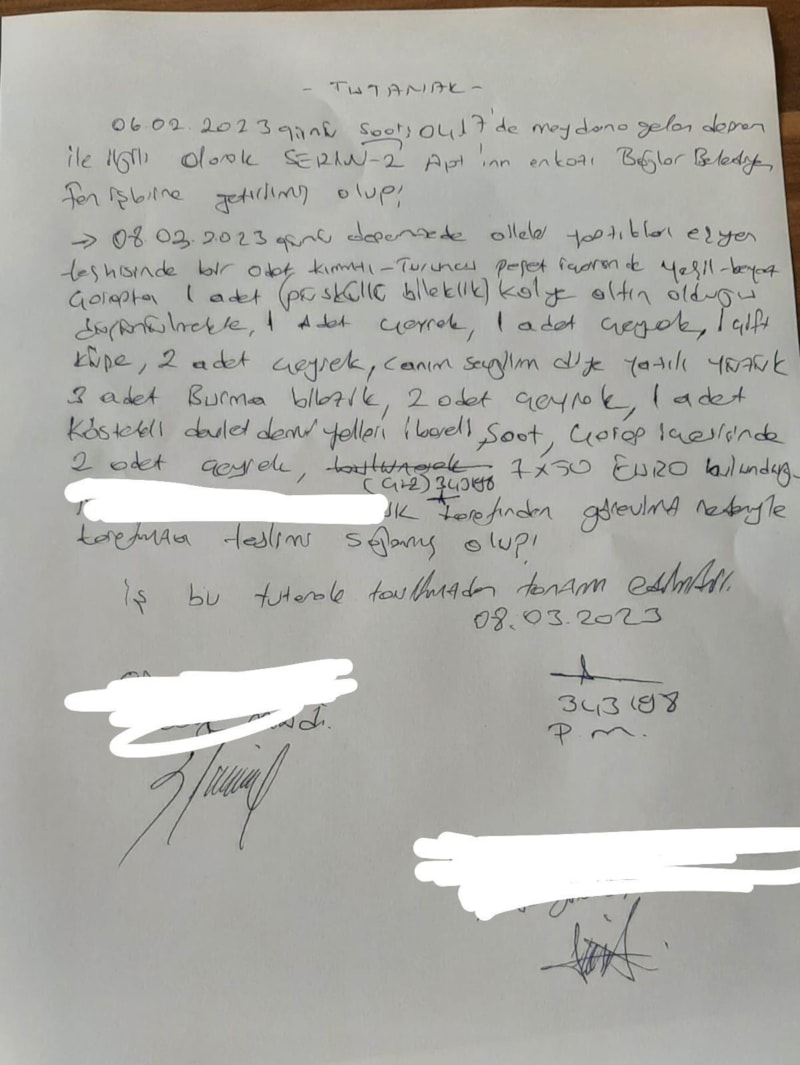 - TUTANAK -
06.02.2023 günü saat; 0417'de meydana gelen deprem
ile ilgili olarak SERİN-2 Apt'ının enkazı Bağlar Belediyesi
Fen işlerine getirilmiş olup;
→ 08.03.2023 günü depremzede aileler yaptıkları eşyen
teşhisinde bir adet kırmızı-Turuncu poşet içerisinde yeşil-beyaz
Çoraptan 1 adet (püsküllü bileklik) kolye altın olduğu
düşünülmekte, 1 Adet çeyrek, 1 adet çeyrek, 1 çift
küpe, 2 adet çeyrek, canım sevgilim diye yazılı yüzük
3 adet Burma bilezik, 2 adet çeyrek, 1 adet
Köstekli devlet demir yolları ibareli saat, Çorap içerisinde
2 adet çeyrek, 7x50 EURO
343198
tarafından görevlimiz nedeniyle
tarafımıza teslimi sağlanmış olup;
iş bu tutanak tarafımızdan tanzim edilmiştir.
08.03.2023
343198
P.M.